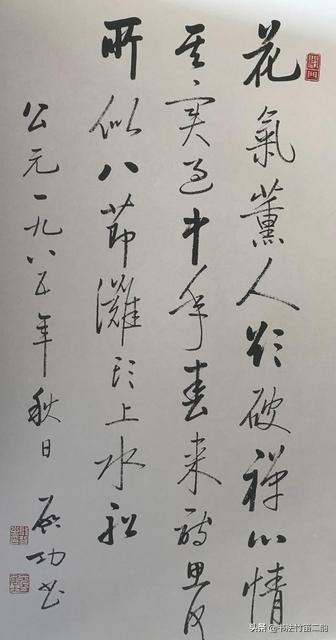 花氣薰人欲破禪心情
其實過中年春來詩思何
所似八節灘頭上水船
公元一九八五年秋日 啟功书
头条 @书法竹笛二韵